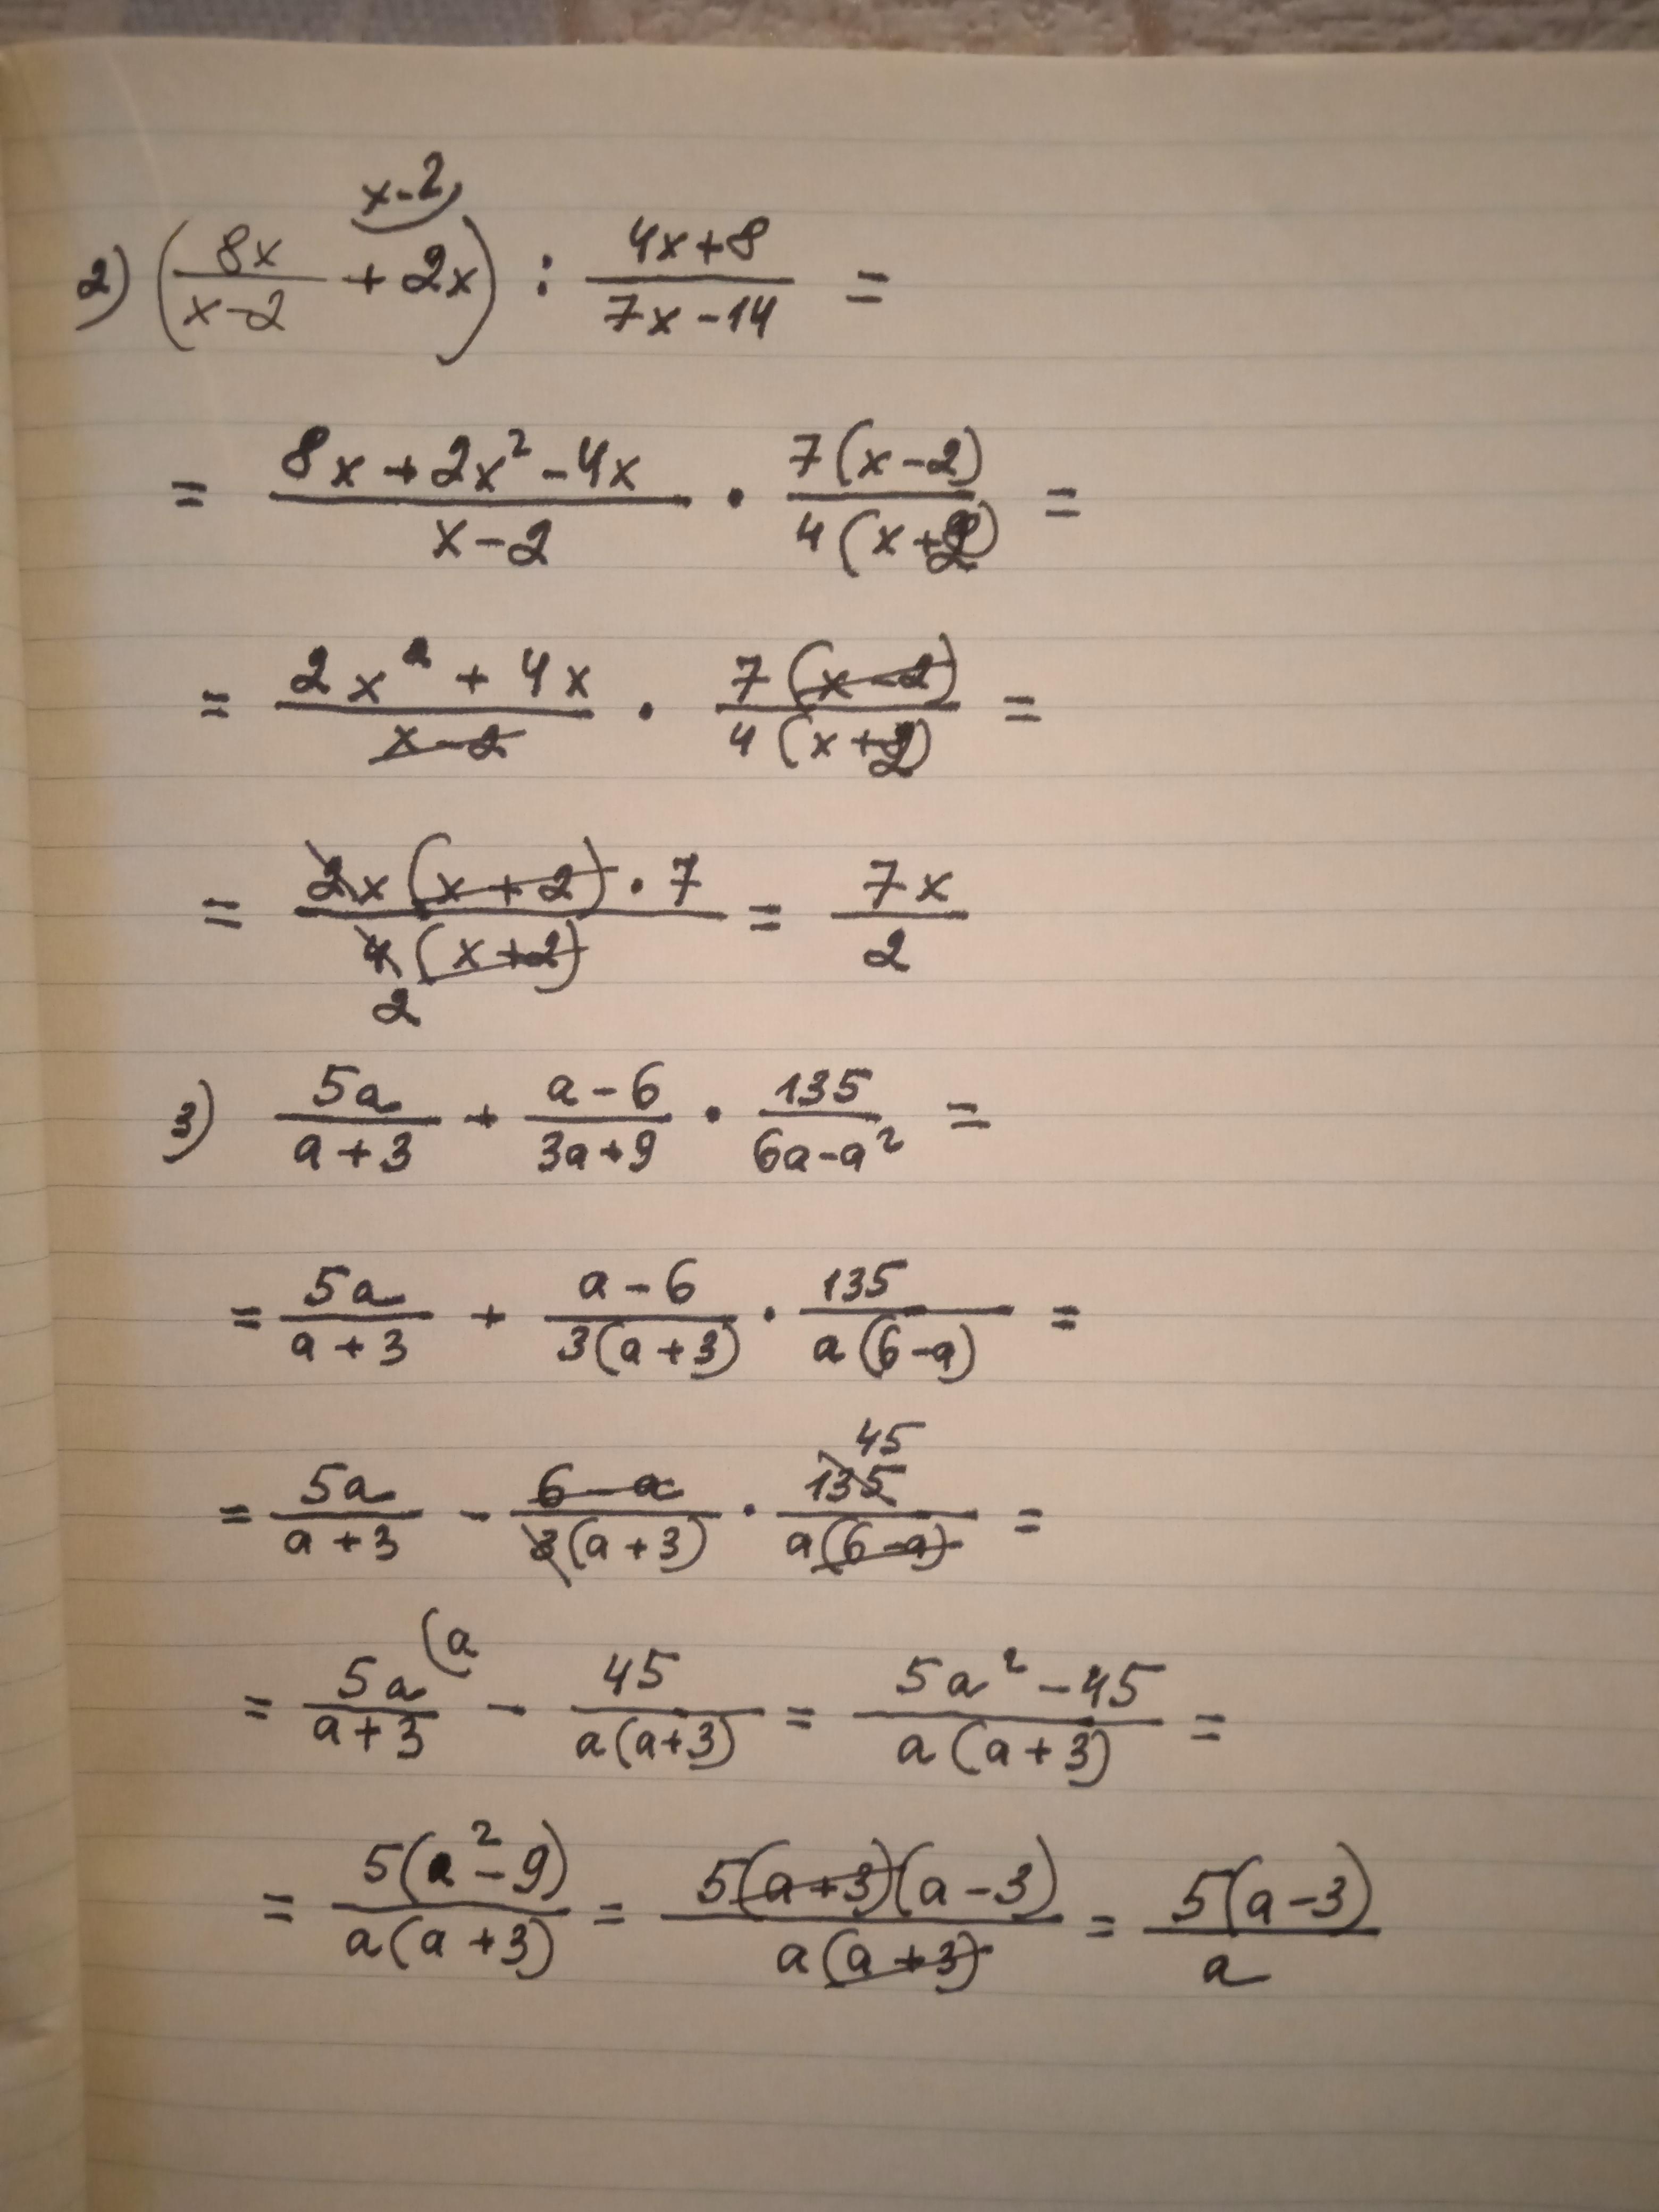 x-2
2) (8x/(x-2) + 2x) : (4x+8)/(7x-14) =
= (8x+2x²-4x)/(x-2) · 7(x-2)/4(x+2) =
= (2x²+4x)/(x-2) · 7(x-2)/4(x+2) =
= 2x(x+2)·7/4(x+2) = 7x/2
2
3) 5a/(a+3) + (a-6)/(3a+9) · 135/(6a-a²) =
= 5a/(a+3) + (a-6)/3(a+3) · 135/a(6-a) =
45
= 5a/(a+3) - (6-a)/3(a+3) · 135/a(6-a) =
(a
= 5a/(a+3) - 45/a(a+3) = (5a²-45)/a(a+3) =
= 5(a²-9)/a(a+3) = 5(a+3)(a-3)/a(a+3) = 5(a-3)/a